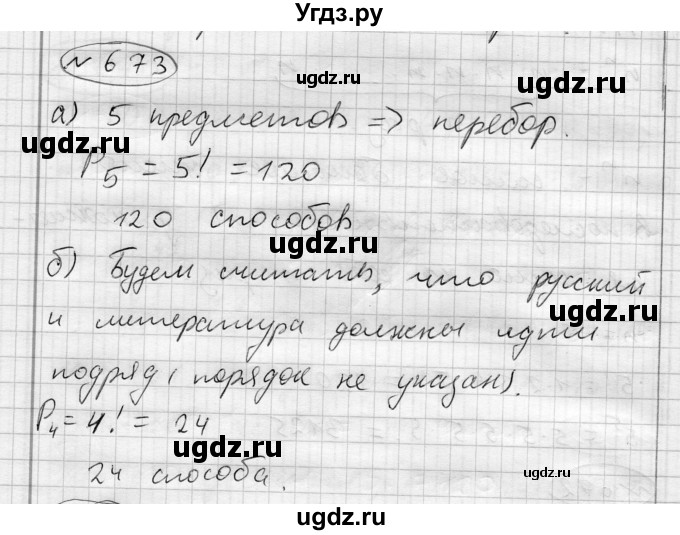 Угдз.ру
№ 673
ugdz.ru
ugdz.ru
а) 5 предметов => перебор.
P₅ = 5! = 120
ugdz.ru
120 способов
ugdz.ru
б) Будем считать, что русский
ugdz.ru
и литература должны идти
подряд (порядок не указан).
P₄ = 4! = 24
ugdz.ru
24 способа.
ugdz.ru
ugdz.ru